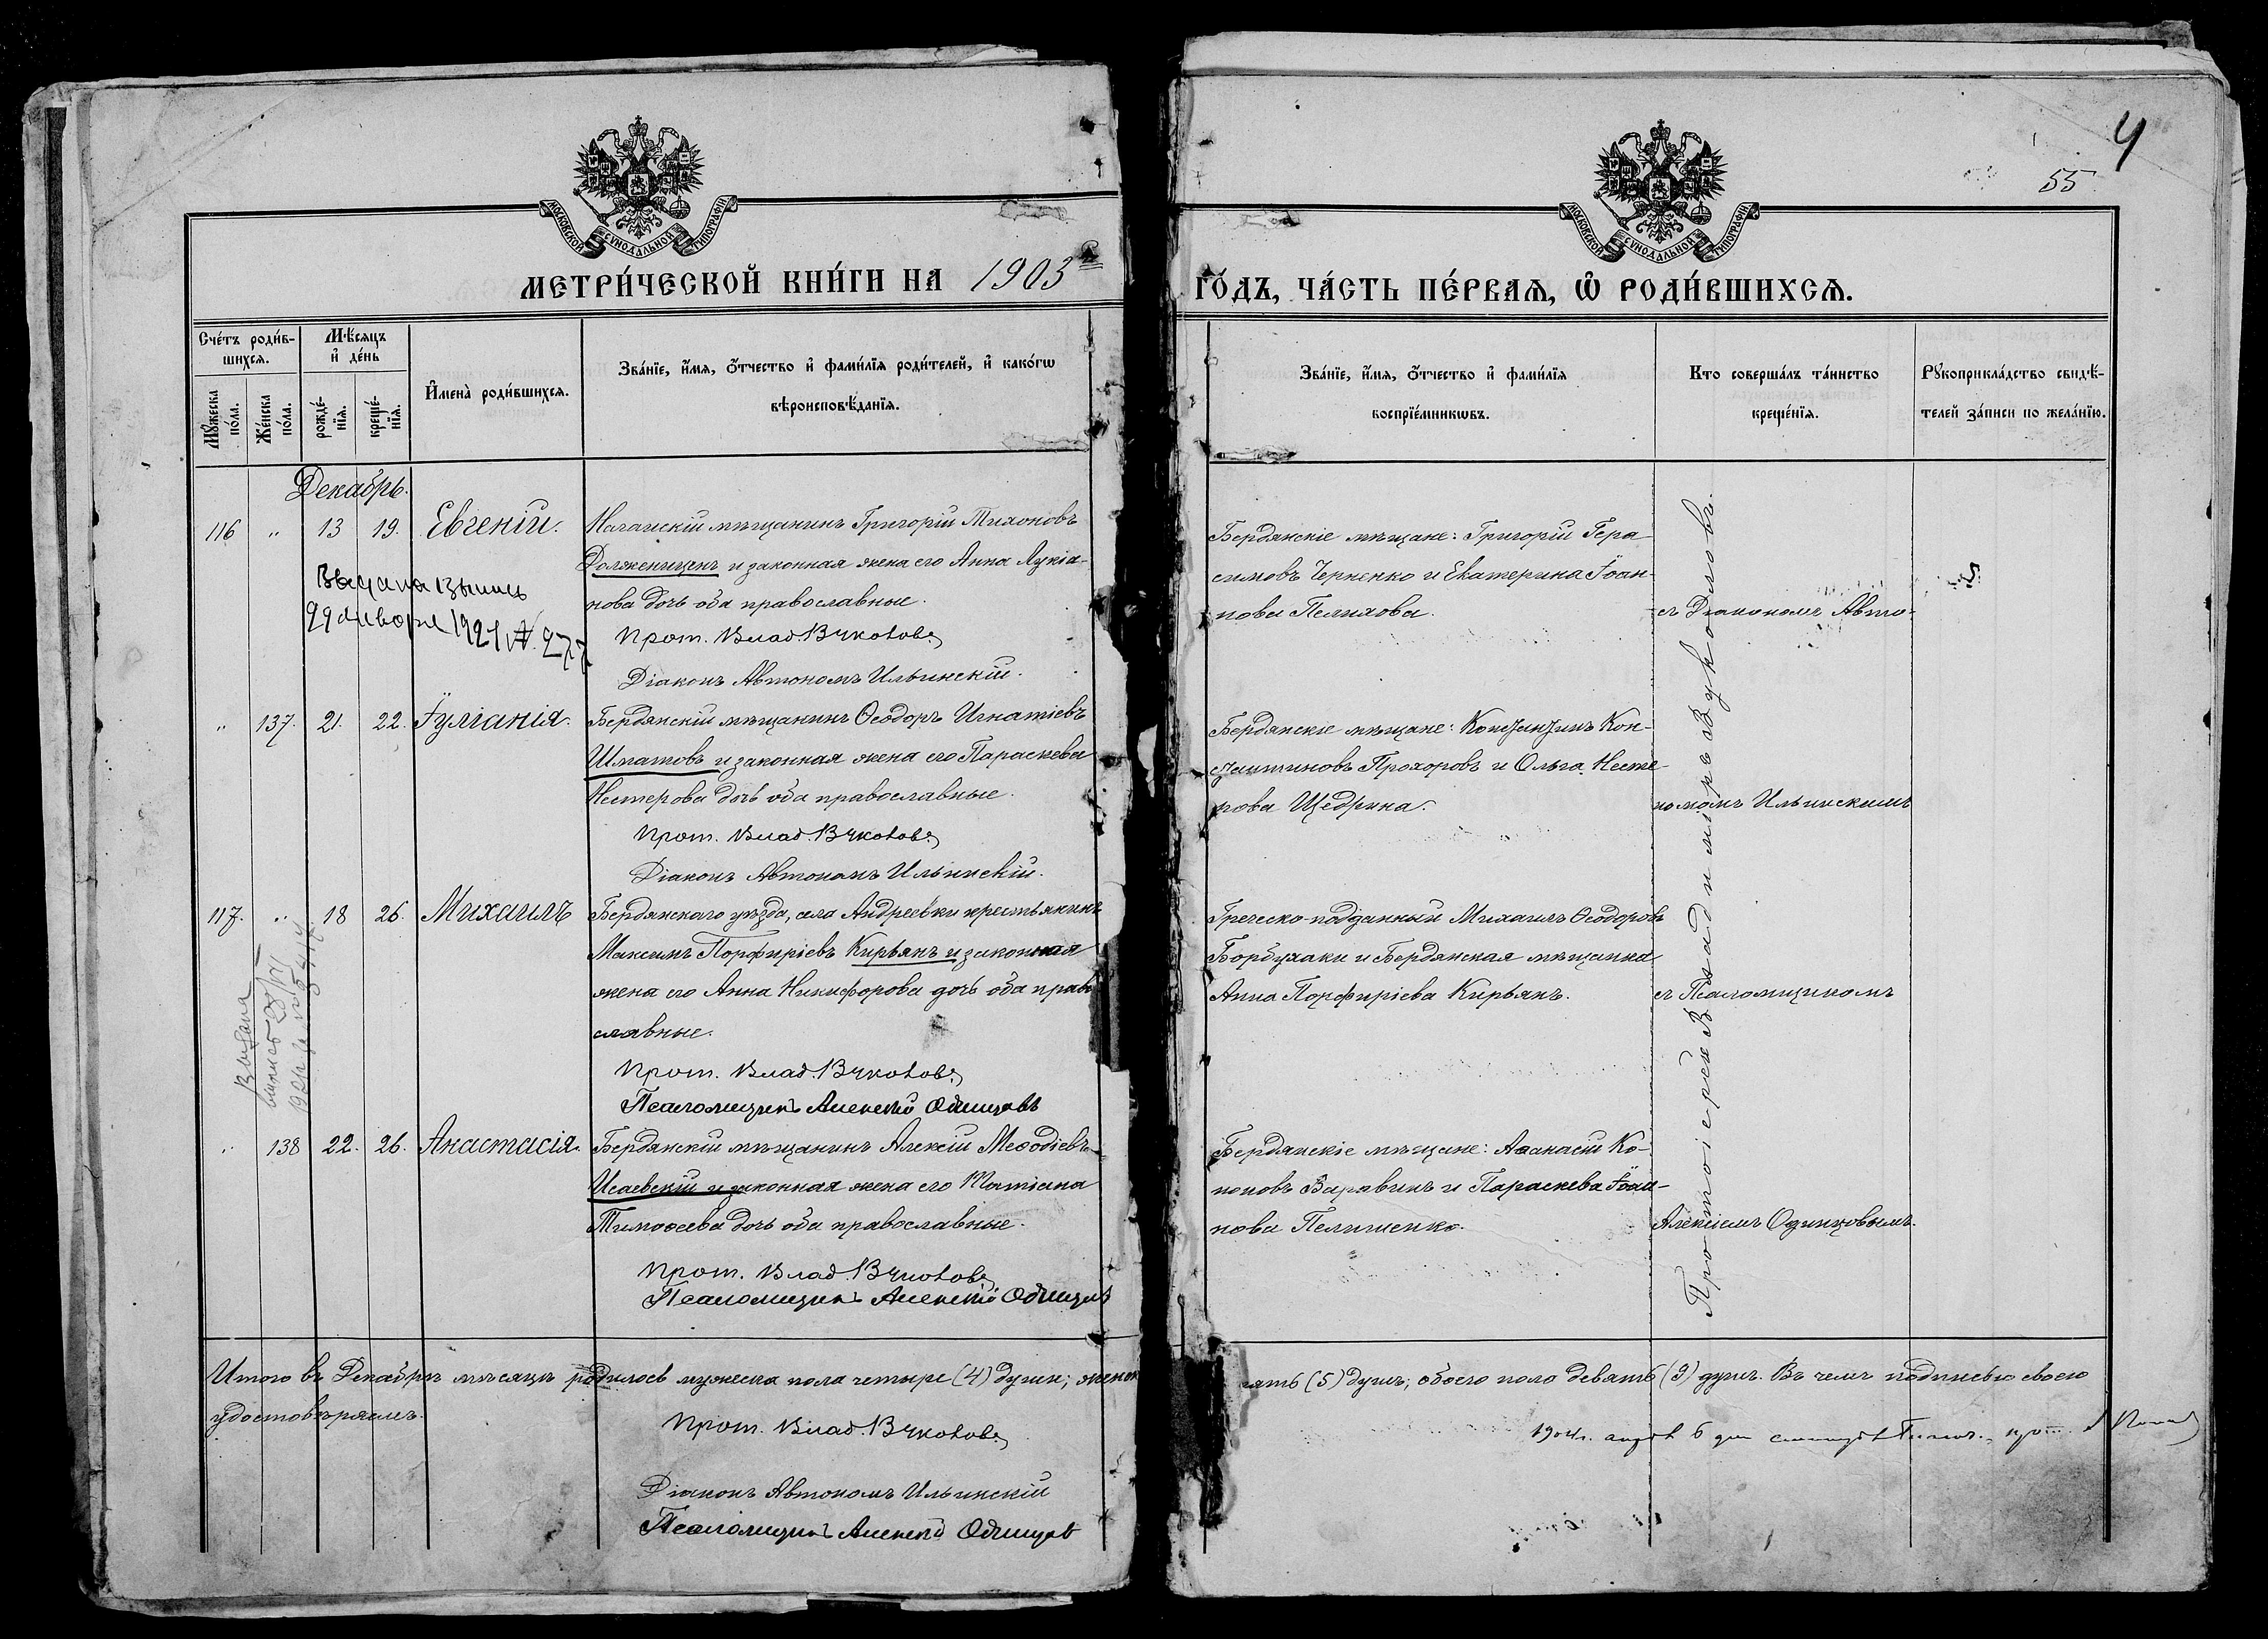 4
55
МОСКОВСКОЙ СѴНОДАЛЬНОЙ ТИПОГРАФІИ
МОСКОВСКОЙ СѴНОДАЛЬНОЙ ТИПОГРАФІИ
МЕТРИ́ЧЕСКОЙ КНИ́ГИ НА 1903
ГО́ДЪ, ЧА́СТЬ ПЕ́РВАЯ, Ѡ҆ РОДИ́ВШИХСЯ.
Сче́тъ роди́в-
шихся.
Мꙋ́жеска по́ла.
Же́нска по́ла.
Мѣ́сяцъ и҆ де́нь
рожде́-нїя.
креще́-нїя.
И҆мена̀ роди́вшихся.
Зва́нїе, и҆́мя, ѻ҆́тчество и҆ фами́лїя роди́телей, и҆ како́гѡ
вѣроисповѣ́данїя.
Зва́нїе, и҆́мя, ѻ҆́тчество и҆ фами́лїя
воспрїе́мникѡвъ.
Кто соверша́лъ та́инство
креще́нїя.
Рꙋкоприкла́дство свидѣ́-
телей за́писи по жела́нїю.
Декабрь.
116 " 13 19. Евгеній. Ногайскій мѣщанинъ Григорій Тихоновъ
Должениценъ и законная жена его Анна Лукіа-
нова дочь оба православные.
Прот. Влад. Вуколовъ
Діаконъ Автономъ Ильинскій.
Выдана выпись
22 января 1921 № 277
Бердянскіе мѣщане: Григорій Гера-
симовъ Черненко и Екатерина Іоан-
нова Пелихова.
" 137. 21. 22. Іуліанія. Бердянскій мѣщанинъ Ѳеодоръ Игнатіевъ
Шматовъ и законная жена его Параскева
Нестерова дочь оба православные.
Прот. Влад. Вуколовъ
Діаконъ Автономъ Ильинскій.
Бердянскіе мѣщане: Константинъ Кон-
стантиновъ Прохоровъ и Ольга Несте-
рова Щедрина.
117. " 18 26. Михаилъ Бердянскаго уѣзда, села Андреевки крестьянинъ
Максимъ Порфиріевъ Кирьянъ и законная
жена его Анна Никифорова дочь оба право
славные.
Прот. Влад. Вуколовъ
Псаломщикъ Алексѣй Одинцовъ
Выдана
выпись
Греческо-подданный Михаилъ Ѳеодоровъ
Борбухаки и Бердянская мѣщанка
Анна Порфиріева Кирьянъ.
" 138 22. 26. Анастасія. Бердянскій мѣщанинъ Алексій Меѳодіевъ
Исаевскій и законная жена его Татіана
Тимоѳеева дочь оба православные.
Прот. Влад. Вуколовъ
Псаломщикъ Алексѣй Одинцовъ
Бердянскіе мѣщане: Аѳанасій Ко-
ноновъ Варавинъ и Параскева Іоан-
нова Пелишенко.
Протоіерей Владиміръ Вуколовъ
съ Діакономъ Авто-
номомъ Ильинскимъ
съ Псаломщикомъ
Алексіемъ Одинцовымъ.
Итого въ Декабрѣ мѣсяцѣ родилось мужеска пола четыре (4) души; женска
пять (5) душъ; обоего пола девять (9) душъ. Въ чемъ подписью своею
удостовѣряемъ.
Прот. Влад. Вуколовъ
Діаконъ Автономъ Ильинскій
Псаломщикъ Алексѣй Одинцовъ
1904г.